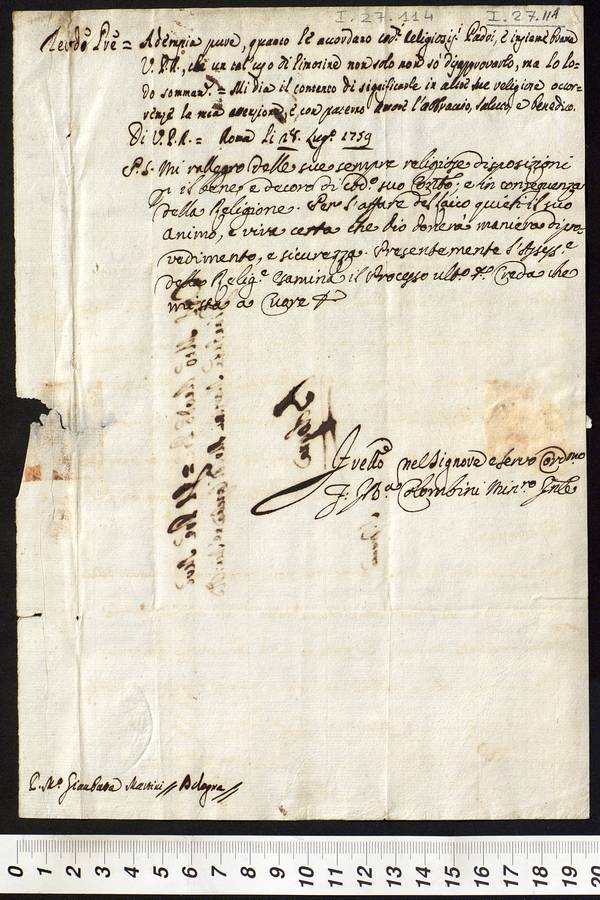 I.27.114 I.27.114
Revdo Pre = Adempia pure, quanto le accordano cod.i religiosis.i Padri, e insieme
V.P.R., che un tal uso di limosine non solo non so disapprovarlo, ma lo lo-
do sommam.e = Mi dia il contento di significarle in altre sue religiose occor-
renze la mia attenzione, e con paterno amore l'abbraccio, saluto, e benedico.
Di V.P.R. = Roma li 28. Lugo 1759
P.S. Mi rallegro delle sue sempre religiose disposizioni
p il bene, e decoro di cod.o suo Conto; e in conseguenza
della Religione. Per l'affare del laico quieti il suo
animo, e viva certa che Dio donerà maniera di pro-
vedimento, e sicurezza. Presentemente l'Asses.e
della Relig.e esamina il Processo ult.o Creda che
mi sta a cuore
nel Signore e servo
F: G Ba Colombini Minro Gnle
P. Mo Giambatta Martini // Bologna //
0 1 2 3 4 5 6 7 8 9 10 11 12 13 14 15 16 17 18 19 20